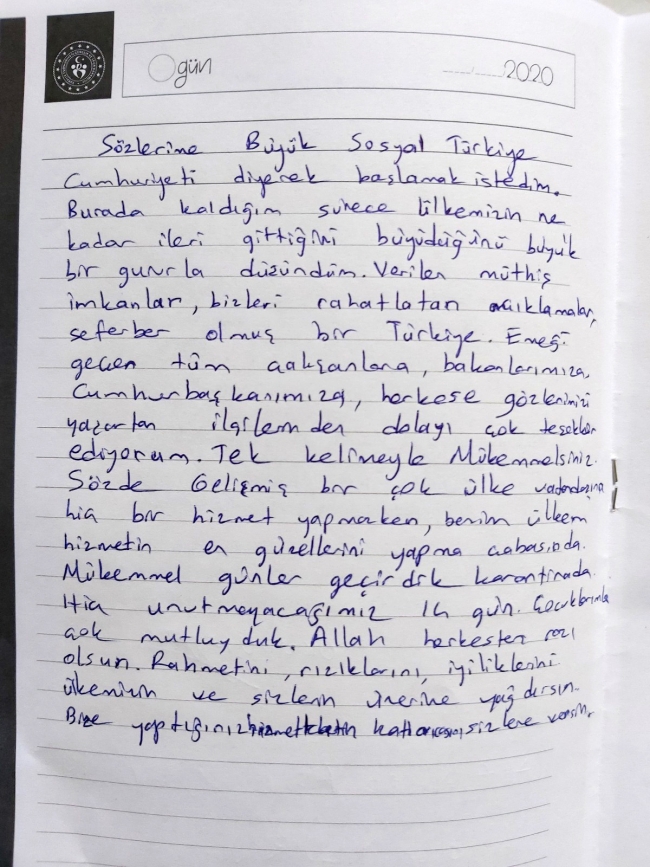 gün
2020
Sözlerime Büyük Sosyal Türkiye
Cumhuriyeti diyerek başlamak istedim.
Burada kaldığım sürece ülkemizin ne
kadar ileri gittiğini büyüdüğünü büyük
bir gururla düzündüm. Verilen müthiş
imkanlar, bizleri rahatlatan açıklamalar,
seferber olmuş bir Türkiye. Emeği
geçen tüm çalışanlara, bakanlarımıza,
Cumhurbaşkanımıza, herkese gözlerimizi
yaşartan ilgilerinden dolayı çok teşekkür
ediyorum. Tek kelimeyle Mükemmelsiniz.
Sözde Gelişmiş bir çok ülke vatandaşına
hiç bir hizmet yapmazken, benim ülkem
hizmetin en güzellerini yapma çabasında.
Mükemmel günler geçirdik karantinada.
Hiç unutmayacağımız 14 gün. Çocuklarımla
çok mutluyduk. Allah herkesten razı
olsun. Rahmetini, rızıklarını, iyiliklerini
ülkemizin ve sizlerin üzerine yağdırsın.
Bize yaptığınız hizmetlerin sizlere versin.